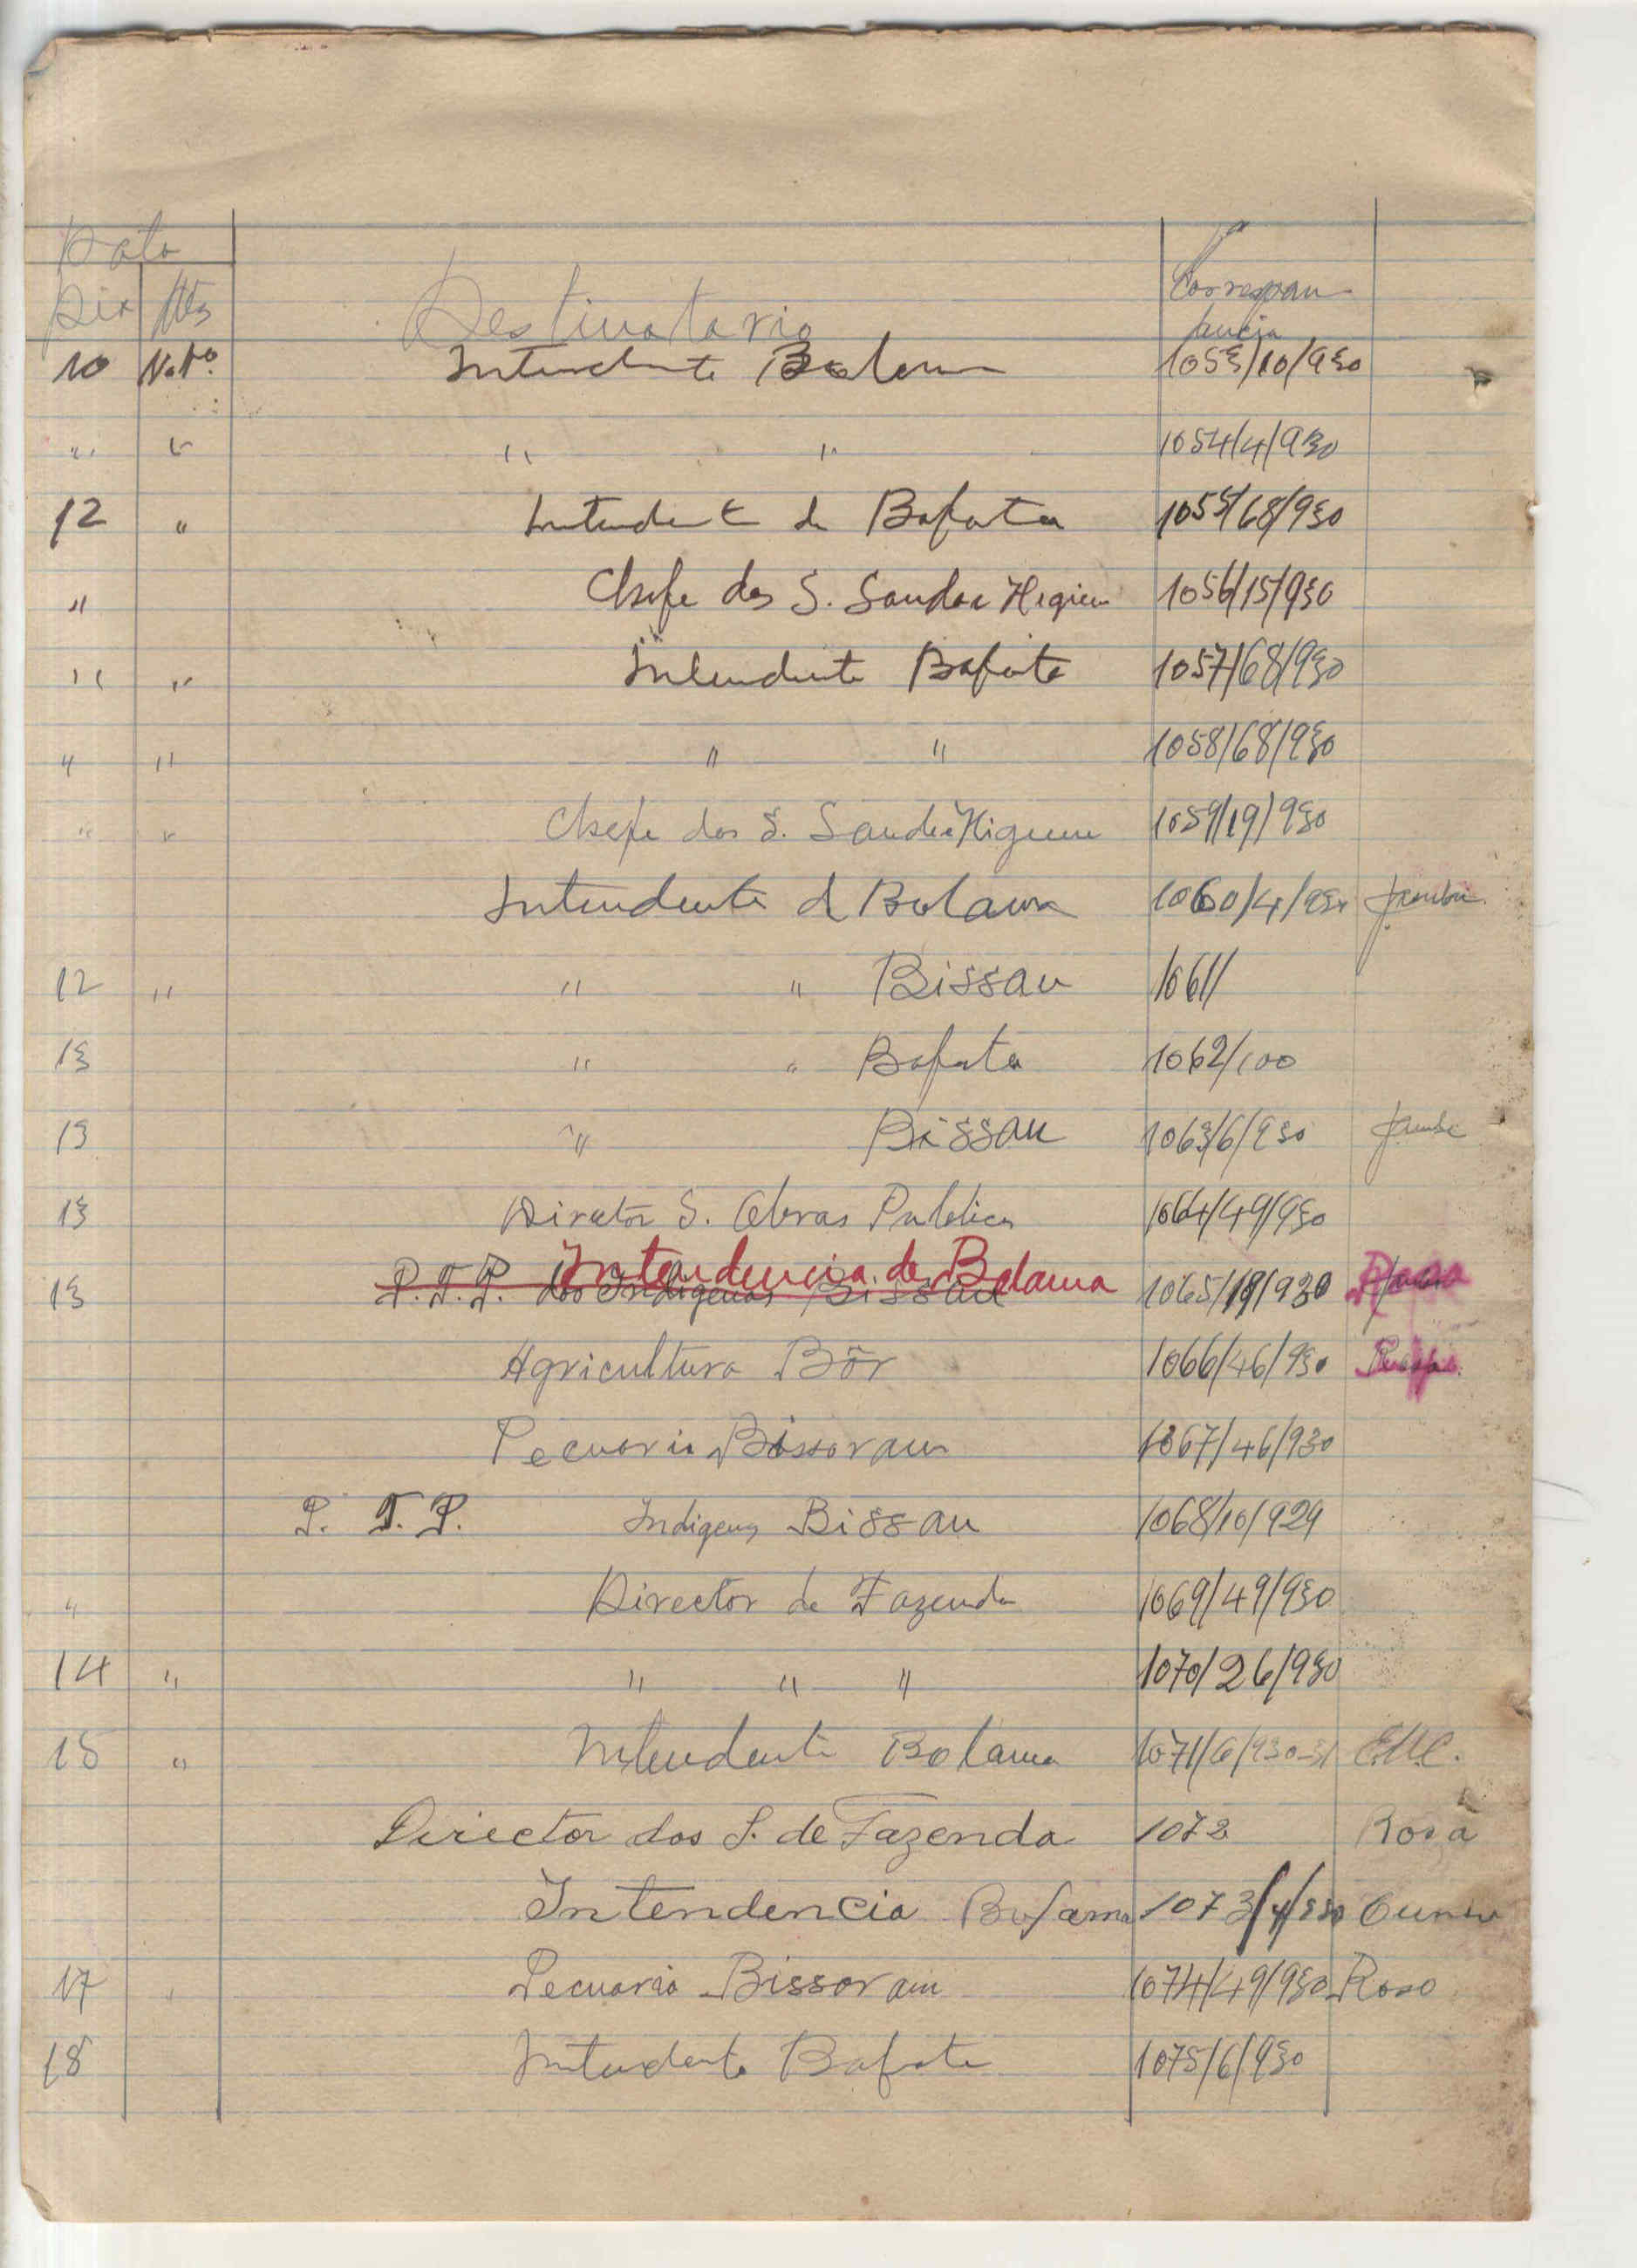 Data
Dia Mês Destinatario Correspon
dencia
10 Nov.º Intendente Bolama 1053/10/930
" " " " 1054/4/930
12 " Intendente de Bafata 1055/68/930
" Chefe dos S. Saude e Higiene 1056/15/930
" " Intendente Bafata 1057/68/930
" " " " 1058/68/930
" " Chefe dos S. Saude e Higiene 1059/19/930
Intendente de Bolama 1060/4/930
12 " " " Bissau 1061/
13 " " Bafata 1062/100
13 " Bissau 1063/6/930
13 Director S. Obras Publicas 1064/49/930
Intendencia de Bolama
13 P.T.P. dos Indigenas Bissau 1065/19/930
Agricultura Bôr 1066/46/930
Pecuaria Bissoram 1067/46/930
P. T. P. Indigenas Bissau 1068/10/929
" Director de Fazenda 1069/49/930
14 " " " " 1070/26/930
15 " Intendente Bolama 1071/6/930-31
Director dos S. de Fazenda 1072 Rosa
Intendencia Bolama 1073/4/930 Cunha
17 " Pecuaria Bissoram 1074/49/930 Rosa
18 Intendente Bafata 1075/6/930